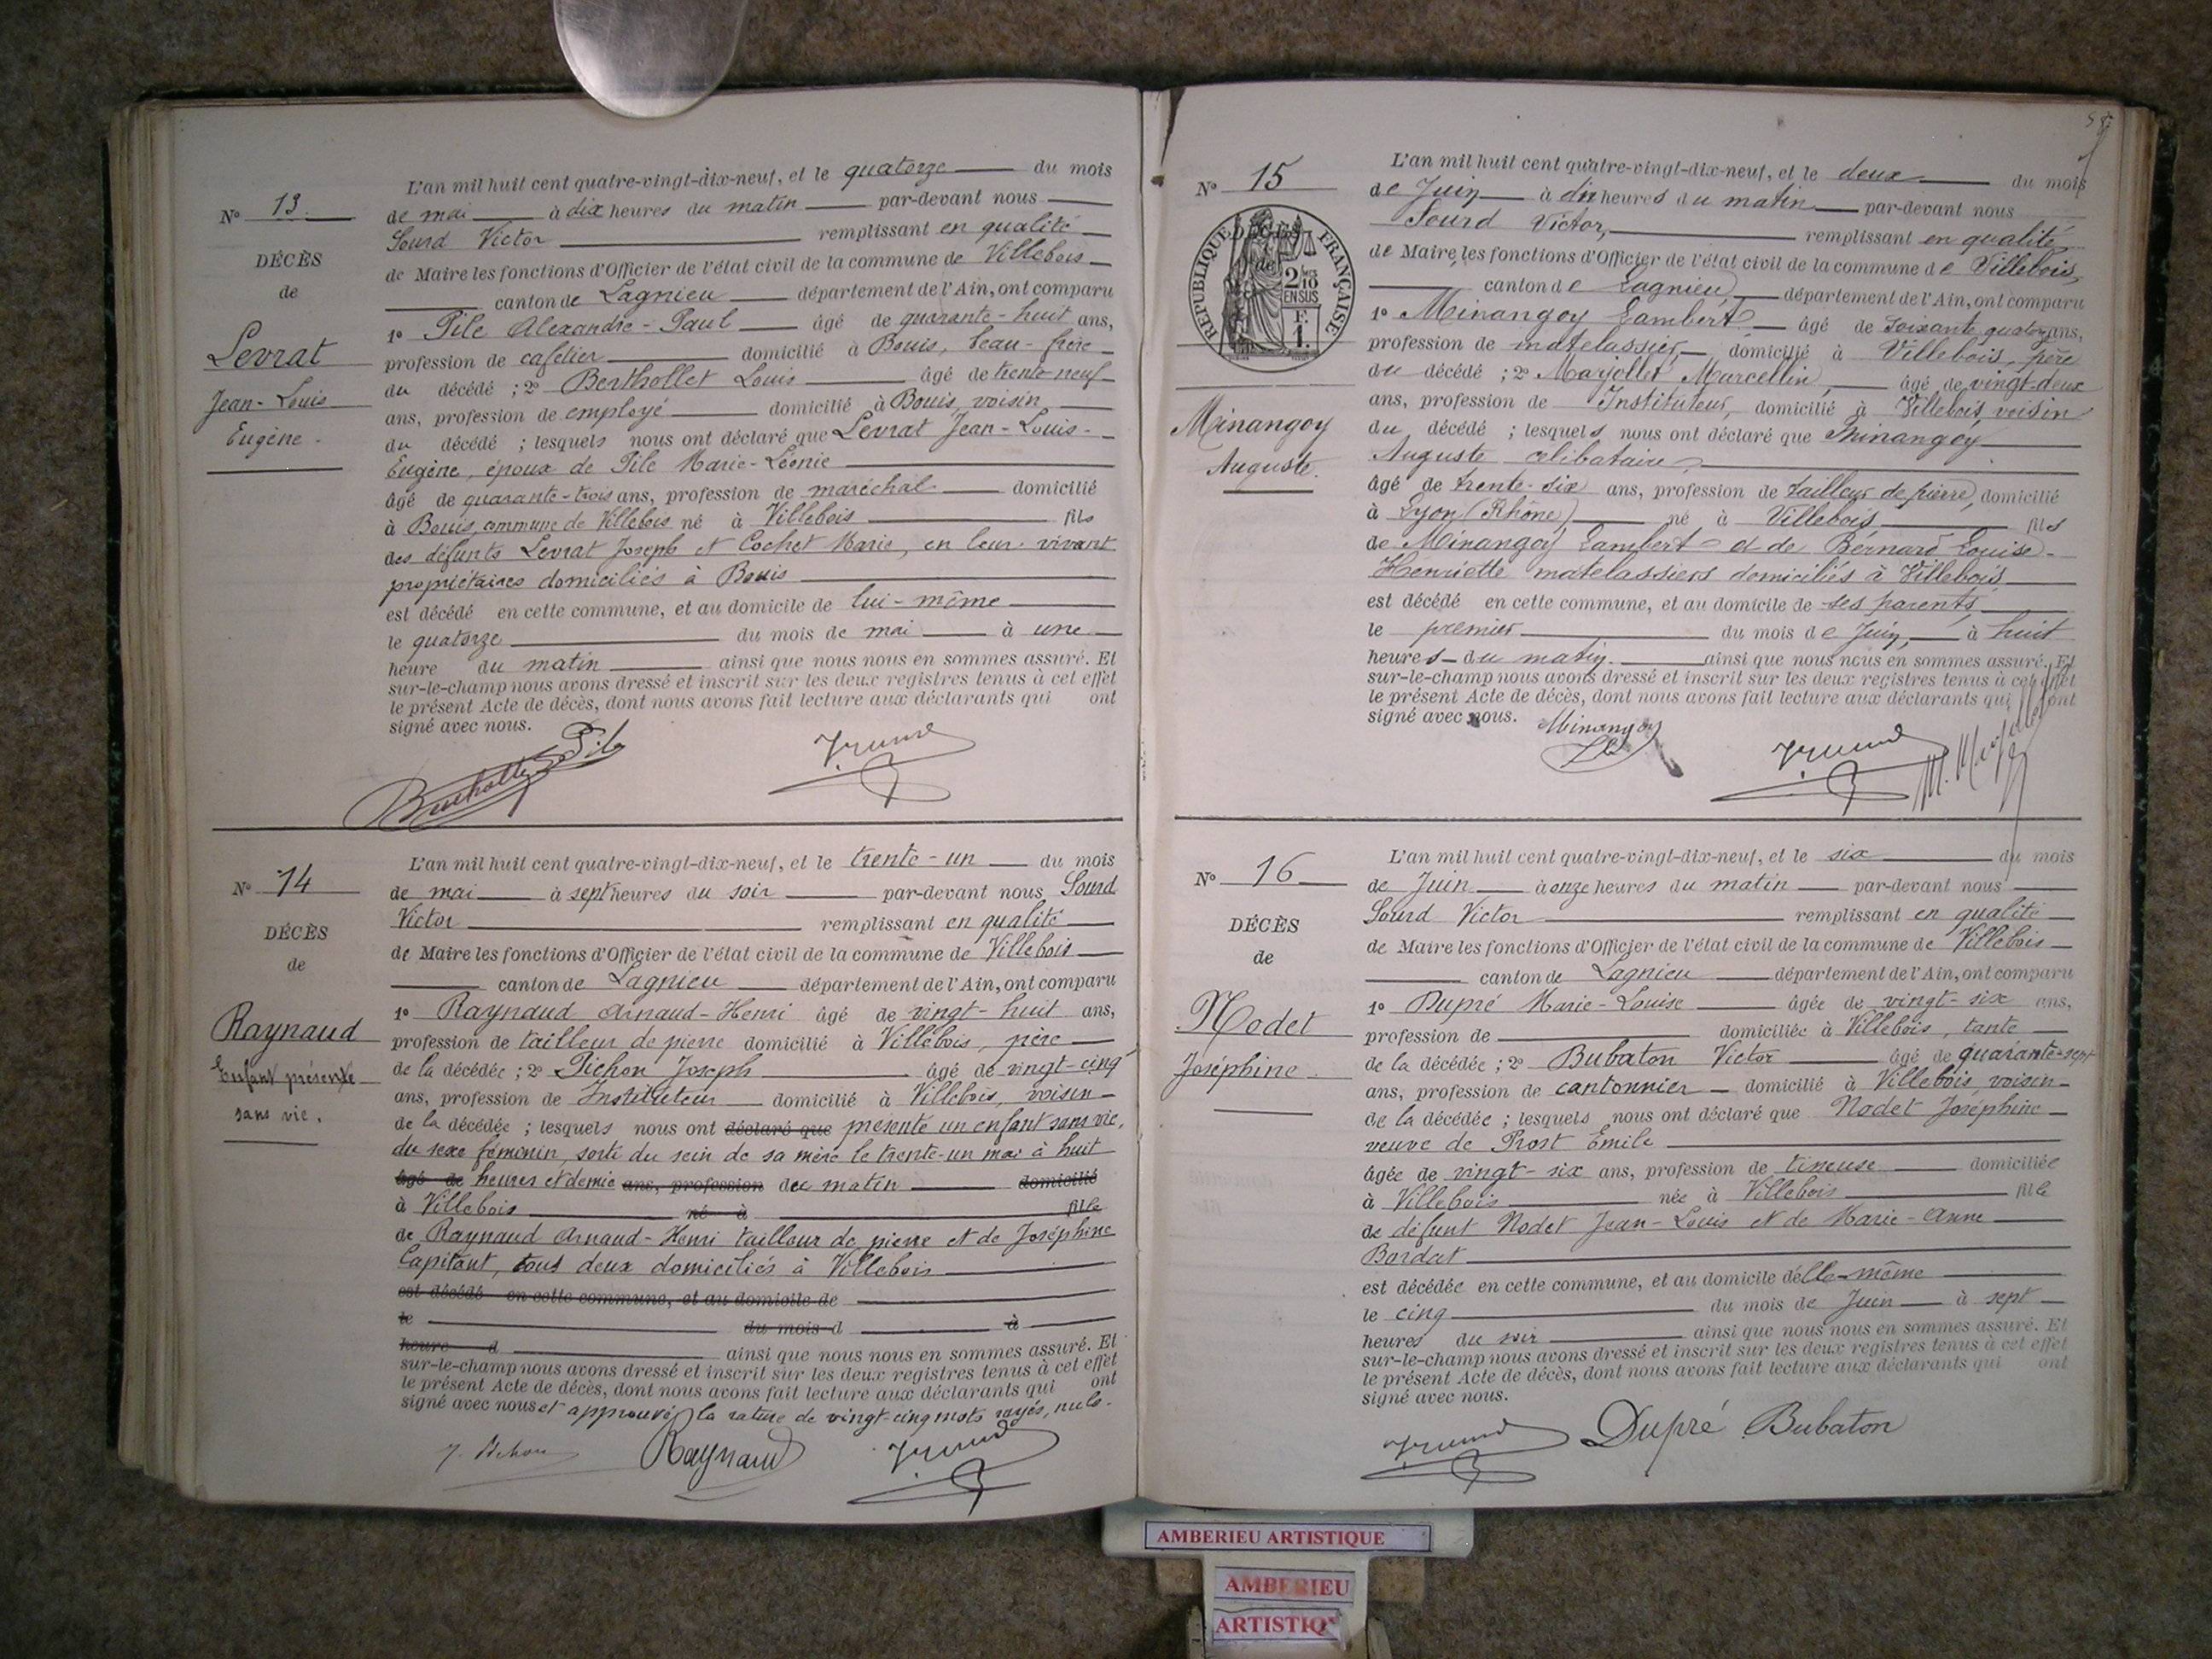 N° 13
DÉCÈS
de
Levrat
Jean-Louis
Eugène.
L'an mil huit cent quatre-vingt-dix-neuf, et le quatorze du mois
de mai à dix heures du matin par-devant nous
Sourd Victor remplissant en qualité
de Maire les fonctions d'Officier de l'état civil de la commune de Villebois
canton de Lagnieu département de l'Ain, ont comparu
1° Pile Alexandre-Paul âgé de quarante-huit ans,
profession de cafetier domicilié à Bouis, beau-frère
du décédé ; 2° Berthollet Louis âgé de trente-neuf
ans, profession de employé domicilié à Bouis, voisin
du décédé ; lesquels nous ont déclaré que Levrat Jean-Louis-
Eugène, époux de Pile Marie-Léonie
âgé de quarante-trois ans, profession de maréchal domicilié
à Bouis, commune de Villebois né à Villebois fils
des défunts Levrat Joseph et Cochet Marie, en leur vivant
propriétaires domiciliés à Bouis
est décédé en cette commune, et au domicile de lui-même
le quatorze du mois de mai à une
heure du matin ainsi que nous nous en sommes assuré. Et
sur-le-champ nous avons dressé et inscrit sur les deux registres tenus à cet effet
le présent Acte de décès, dont nous avons fait lecture aux déclarants qui ont
signé avec nous.
Pile
Berthollet
N° 14
DÉCÈS
de
Raynaud
Enfant présenté
sans vie.
L'an mil huit cent quatre-vingt-dix-neuf, et le trente-un du mois
de mai à sept heures du soir par-devant nous Sourd
Victor remplissant en qualité
de Maire les fonctions d'Officier de l'état civil de la commune de Villebois
canton de Lagnieu département de l'Ain, ont comparu
1° Raynaud Arnaud-Henri âgé de vingt-huit ans,
profession de tailleur de pierre domicilié à Villebois, père
de la décédée ; 2° Pichon Joseph âgé de vingt-cinq
ans, profession de Instituteur domicilié à Villebois, voisin
de la décédée ; lesquels nous ont déclaré que présenté un enfant sans vie,
du sexe féminin, sorti du sein de sa mère le trente-un mai à huit
âgé de heures et demie ans, profession du matin domicilié
à Villebois né à fille
de Raynaud Arnaud-Henri tailleur de pierre et de Joséphine
Capitant, tous deux domiciliés à Villebois
est décédé en cette commune, et au domicile de
le du mois d à
heure d ainsi que nous nous en sommes assuré. Et
sur-le-champ nous avons dressé et inscrit sur les deux registres tenus à cet effet
le présent Acte de décès, dont nous avons fait lecture aux déclarants qui ont
signé avec nous et approuvé la rature de vingt-cinq mots rayés, nuls.
J. Pichon Raynaud
N° 15
RÉPUBLIQUE FRANÇAISE
DÉCÈS
de
2/10 EN SUS
F. 1.
Minangoy
Auguste.
L'an mil huit cent quatre-vingt-dix-neuf, et le deux du mois
de Juin à dix heures du matin par-devant nous
Sourd Victor, remplissant en qualité
de Maire les fonctions d'Officier de l'état civil de la commune de Villebois,
canton de Lagnieu, département de l'Ain, ont comparu
1° Minangoy Lambert âgé de soixante quatorze ans,
profession de matelassier, domicilié à Villebois, père
du décédé ; 2° Marjollet Marcellin, âgé de vingt-deux
ans, profession de Instituteur, domicilié à Villebois, voisin
du décédé ; lesquels nous ont déclaré que Minangoy
Auguste célibataire,
âgé de trente-six ans, profession de tailleur de pierre, domicilié
à Lyon (Rhône), né à Villebois fils
de Minangoy Lambert et de Bernard Louise-
Henriette matelassiers domiciliés à Villebois
est décédé en cette commune, et au domicile de ses parents,
le premier du mois de Juin, à huit
heures du matin. ainsi que nous nous en sommes assuré. Et
sur-le-champ nous avons dressé et inscrit sur les deux registres tenus à cet effet
le présent Acte de décès, dont nous avons fait lecture aux déclarants qui ont
signé avec nous.
Minangoy
N° 16
DÉCÈS
de
Nodet
Joséphine
L'an mil huit cent quatre-vingt-dix-neuf, et le six du mois
de Juin à onze heures du matin par-devant nous
Sourd Victor remplissant en qualité
de Maire les fonctions d'Officier de l'état civil de la commune de Villebois
canton de Lagnieu département de l'Ain, ont comparu
1° Dupré Marie-Louise âgée de vingt-six ans,
profession de domiciliée à Villebois, tante
de la décédée ; 2° Bubaton Victor âgé de quarante-sept
ans, profession de cantonnier domicilié à Villebois, voisin
de la décédée ; lesquels nous ont déclaré que Nodet Joséphine
veuve de Prost Emile
âgée de vingt-six ans, profession de domiciliée
à Villebois née à Villebois fille
de défunt Nodet Jean-Louis et de Marie-Anne
Bordat
est décédée en cette commune, et au domicile d'elle-même
le cinq du mois de Juin à sept
heures du soir ainsi que nous nous en sommes assuré. Et
sur-le-champ nous avons dressé et inscrit sur les deux registres tenus à cet effet
le présent Acte de décès, dont nous avons fait lecture aux déclarants qui ont
signé avec nous.
Dupré Bubaton
AMBERIEU ARTISTIQUE
AMBERIEU
ARTISTIQ